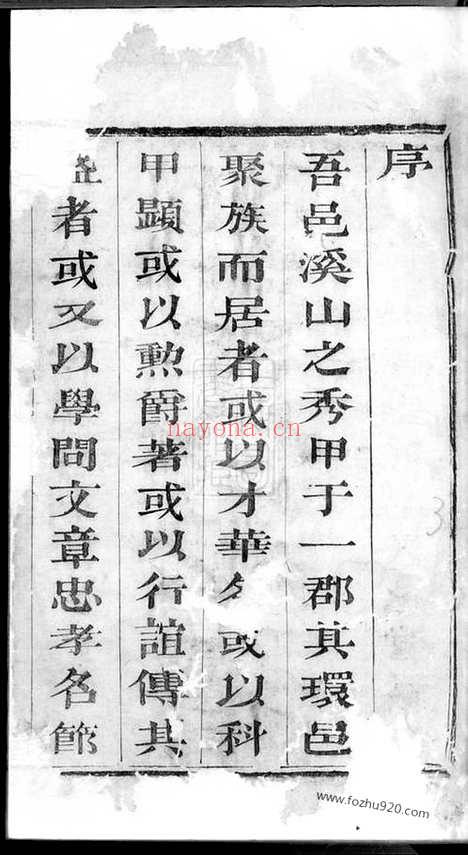 序
吾邑溪山之秀甲于一郡其環邑
聚族而居者或以才華 或以科
甲顯或以勲爵著或以行誼傳其
者或又以學問文章忠孝名節
nayona.cn
3
www.fozhu920.com